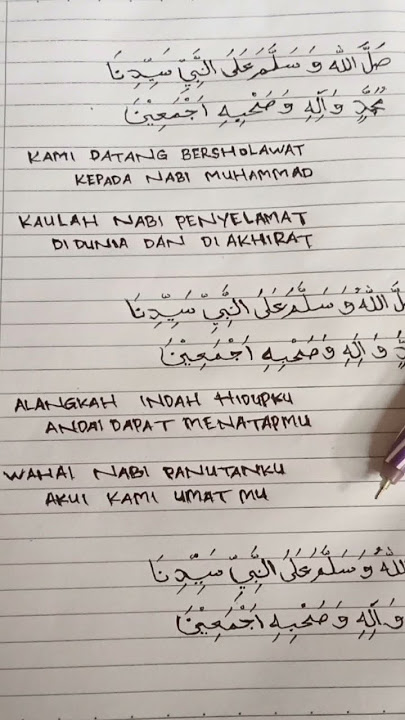 صَلَّ اللهُ وَسَلَّمَ عَلَى النَّبِيِّ سَيِّدِنَا
مُحَمَّدٍ وَآلِهِ وَصَحْبِهِ اَجْمَعِيْنَ
KAMI DATANG BERSHOLAWAT
KEPADA NABI MUHAMMAD
KAULAH NABI PENYELAMAT
DI DUNIA DAN DI AKHIRAT
اللهُ وَسَلَّمَ عَلَى النَّبِيِّ سَيِّدِنَا
وَآلِهِ وَصَحْبِهِ اَجْمَعِيْنَ
ALANGKAH INDAH HIDUPKU
ANDAI DAPAT MENATAPMU
WAHAI NABI PANUTANKU
AKUI KAMI UMAT MU
وَسَلَّمَ عَلَى النَّبِيِّ سَيِّدِنَا
وَآلِهِ وَصَحْبِهِ اَجْمَعِيْنَ